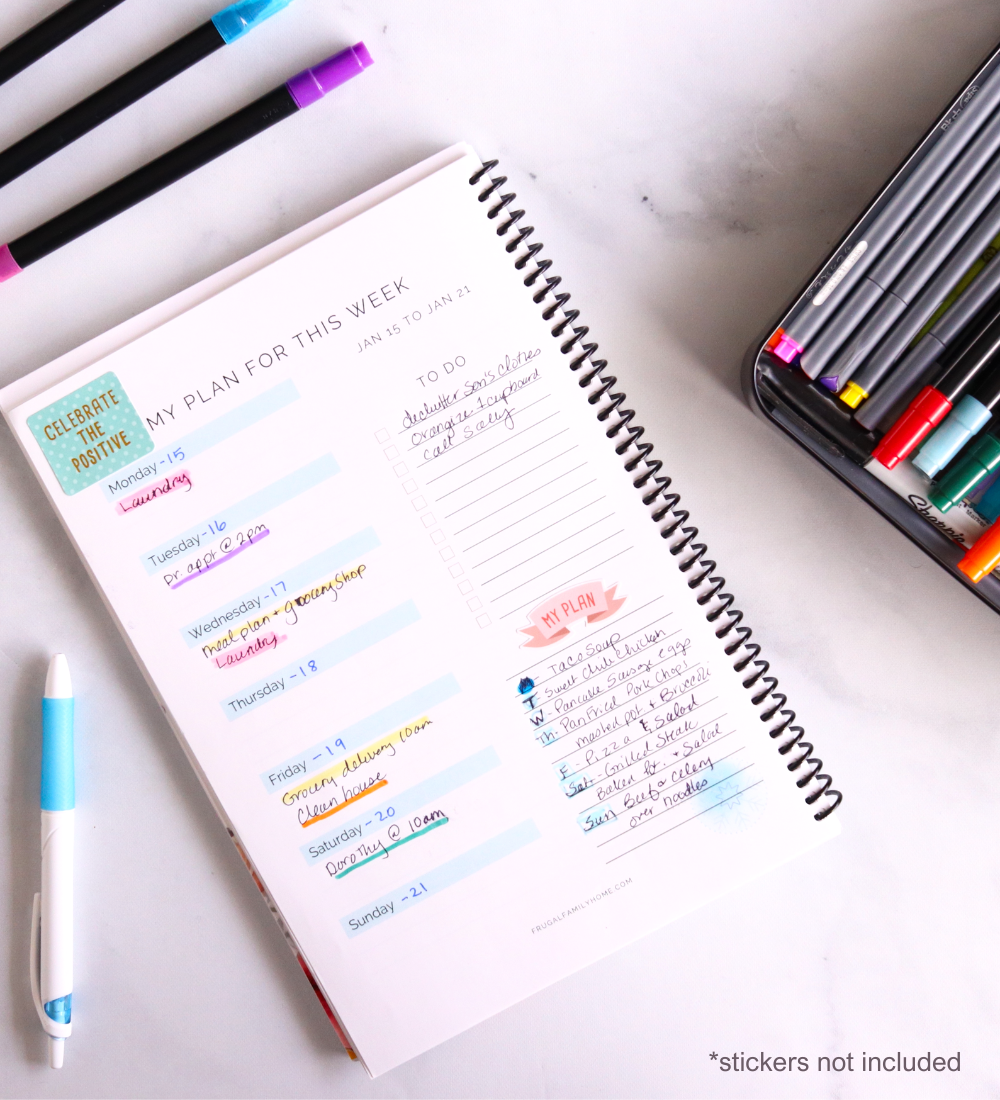 MY PLAN FOR THIS WEEK
JAN 15 TO JAN 21
CELEBRATE
THE
POSITIVE
Monday -15
Laundry
Tuesday -16
Dr. appt @ 2pm
Wednesday -17
meal plan + grocery shop
Laundry
Thursday -18
Friday -19
Grocery delivery 10am
Clean house
Saturday -20
Dorothy @ 10am
Sunday -21
TO DO
declutter Son's clothes
Orangize 1 cupboard
call Sally
MY PLAN
Taco Soup
T - Sweet Chili Chicken
W - Pancake Sausage eggs
Th - Pan Fried Pork Chops
mashed pot + Broccoli
F - Pizza & Salad
Sat - Grilled Steak
Baken Pt. + Salad
Sun Beef & celery
over noodles
FRUGALFAMILYHOME.COM
Sharpie
*stickers not included